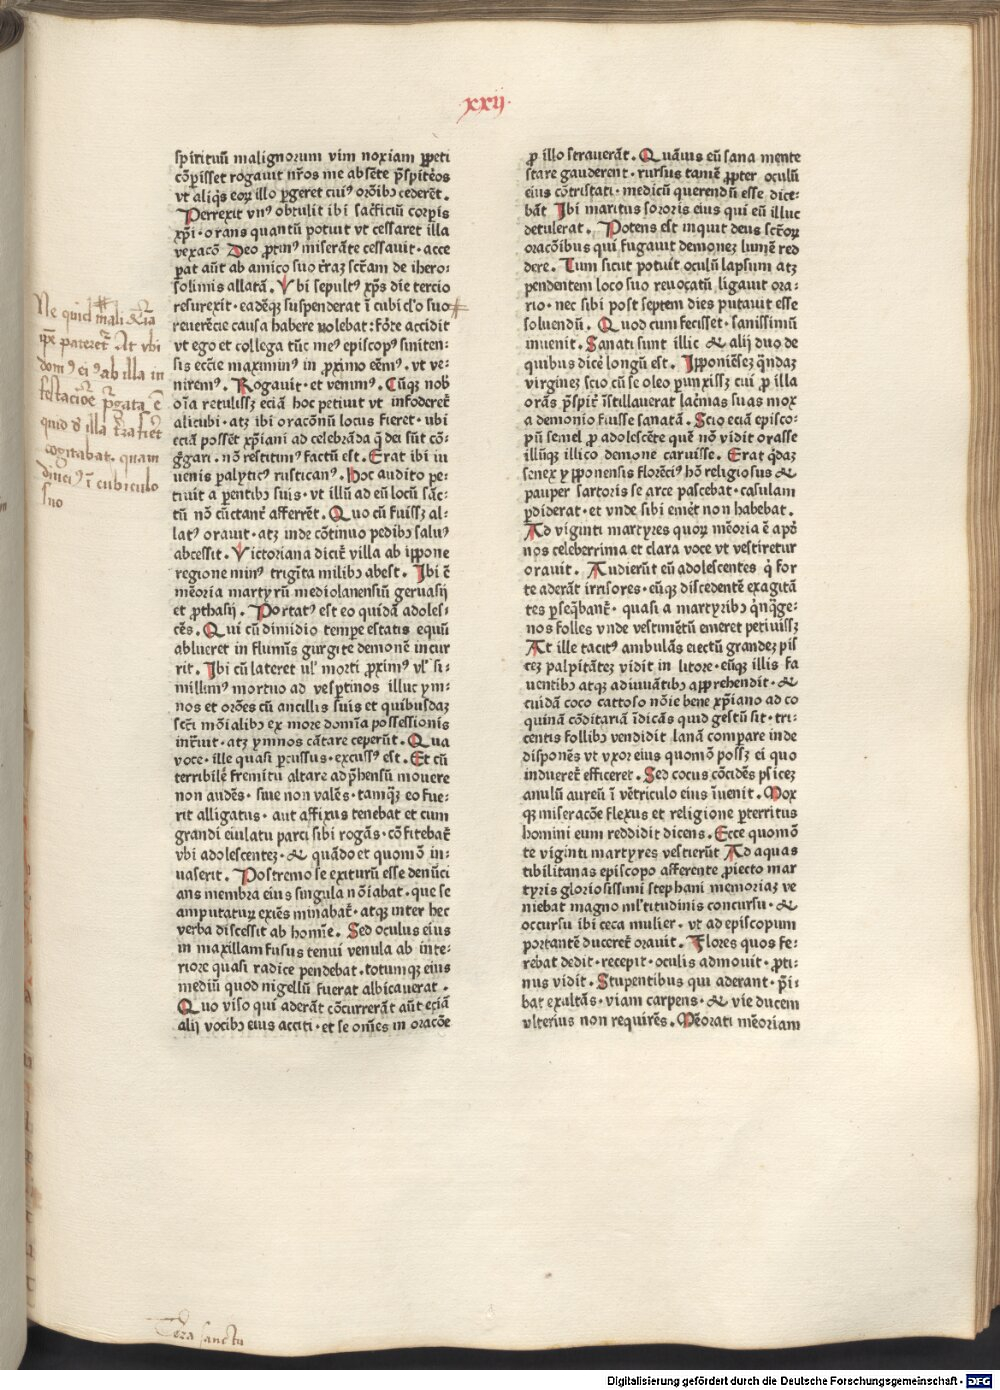 xxij
spirituū malignorum vim noxiam ꝑpeti
cōperisset rogauit nr̄os me absēte p̄sbiteros
vt aliqͥs eoꝝ illo ꝑgeret cui⁹ orōibꝫ cederēt.
Perrexit vn⁹ obtulit ibi sacrificiū corꝑis
xp̄i · orans quantū potuit vt cessaret illa
vexacō Deo ꝓtin⁹ miserāte cessauit · acce
perat aūt ab amico suo terrā sctām de ihero-
solimis allatā. Vbi sepult⁹ xp̄s die tercio
resurexit · eādēqꝫ suspenderat ī cubicl'o suo
reuerēcie causa habere nolebat : forte accidit
vt ego et collega tūc me⁹ episcop⁹ siniten-
sis ecc̄ie maximin⁹ in ꝓximo eēm⁹ · vt ve-
nirem⁹. Rogauit · et venim⁹. Cūqꝫ nob̄
oīa retulissꝫ eciā hoc petiuit vt infoderet̄
alicubi · atqꝫ ibi oracōnū locus fieret · ubi
eciā possēt xp̄iani ad celebrāda q̄ dei sūt cō-
g̃gari · nō restitim⁹ factū est. Erat ibi iu
uenis palytic⁹ rustican⁹. Hoc audito pe-
tiuit a ꝑentibꝫ suis · vt illū ad eū locū sāc-
tū nō cūctant̄ afferrēt. Quo cū fuissꝫ al-
lat⁹ orauit · atqꝫ inde cōtinuo pedibꝫ salu⁹
abcessit. Victoriana dicit̄ villa ab ippone
regione min⁹ trigīta milibꝫ abest. Ibi ē
mēoria martyrū mediolanensiū geruasij
et ꝓthasij. Portat⁹ est eo quidā adoles-
cēs. Qui cū dimidio tempe estatis equū
ablueret in flumīs gurgite demonē incur
rit. Ibi cū lateret ul' morti ꝓxim⁹ ul' si-
millim⁹ mortuo ad vesptinos illuc ym-
nos et orōes cū ancillis suis et quibusdā
sctī mōialibꝫ ex more domīa possessionis
intrauit · atqꝫ ymnos cātare ceperūt. Qua
voce · ille quasi ꝑcussus · excuss⁹ est. Et cū
terribilē fremitū altare adp̄hensū mouere
non audēs · siue non valēs · tamqꝫ eo fue-
rit alligatus · aut affixus tenebat et cum
grandi eiulatu parci sibi rogās · cōfitebat̄
vbi adolescentē · & quādo et quomō in-
uaserit. Postremo se exiturū esse denūci
ans membra eius singula nōiabat · que se
amputaturū exiēs minabat̄ · atqꝫ inter hec
verba discessit ab homīe. Sed oculus eius
in maxillam fusus tenui venula ab inte-
riore quasi radice pendebat · totumqꝫ eius
mediū quod nigellū fuerat albicauerat.
Quo viso qui aderāt cōcurrerāt aūt eciā
alij vocibꝫ eius acciti · et se om̄es in oracōe
ꝓ illo strauerāt. Quāuis eū sana mente
stare gauderent · rursus tamē ꝓpter oculū
eius cōtristati · medicū querendū esse dice-
bāt Ibi maritus sororis eius qui eū illuc
detulerat. Potens est inquit deus sctōꝝ
oracōibus qui fugauit demonē lumē red
dere. Tum sicut potuit oculū lapsum atqꝫ
pendentem loco suo reuocatū ligauit ora-
rio · nec sibi post septem dies putauit esse
soluendū. Quod cum fecisset · sanissimū
inuenit. Sanati sunt illic & alij duo de
quibus dicē longū est. Ippoīiēsē qͣndā
virginē scio cū se oleo ꝑunxissꝫ cui ꝓ illa
orās p̄spit̄ īstillauerat lac̄mas suas mox
a demonio fuisse sanatā. Scio eciā episco-
pū semel ꝓ adolescēte quē nō vidit orasse
illūqꝫ illico demone caruisse. Erat qͥdā
senex ypponensis florēci⁹ hō religiosus &
pauper sartoris se arce pascebat · casulam
ꝑdiderat · et vnde sibi emēt non habebat.
Ad viginti martyres quoꝝ mēoria ē apd̄
nos celeberrima et clara voce vt vestiretur
orauit. Audierūt eū adolescentes qͥ for
te aderāt irrisores · eūqꝫ discedentē exagitā
tes ꝑseq̄banꝉ · quasi a martyribꝫ qͥnqͣge-
nos folles vnde vestimētū emeret petiuissꝫ
At ille tacit⁹ ambulās eiectū grandē pis
cē palpitātē vidit in litore · eūqꝫ illis fa
uentibꝫ atqꝫ adiuuātibꝫ apprehendit · &
cuidā coco cattoso nōie bene xp̄iano ad co
quinā cōditariā īdicās quid gestū sit · tri-
centis follibꝫ vendidit lanā comparē inde
disponēs vt vxor eius quomō possꝫ ei quo
induereꝉ efficeret. Sed cocus cōcidēs piscē
anulū aureū ī vētriculo eius īuenit. Mox
qꝫ miseracōe flexus et religione ꝑterritus
homini eum reddidit dicens. Ecce quomō
te viginti martyres vestierūt Ad aquas
tibilitanas episcopo afferente ꝓiecto mar
tyris gloriosissimi stephani memoriā ve
niebat magno ml'titudinis concursu · &
occursu ibi ceca mulier · vt ad episcopum
portantē duceret̄ orauit. Flores quos fe-
rebat dedit · recepit · oculis admouit · ꝓti-
nus vidit. Stupentibus qui aderant · p̄i-
bat exultās · viam carpens · & vie ducem
vlterius non requirēs. Mēorati mēoriam
Ne quid mali &cͣ
ipē pateretͬ At vbi
dom⁹ ei⁹ ab illa in
festacōe purgata ē
quid d̄ illa terra fieret
cogitabat · quam
diuci⁹ ī cubiculo
suo
Terra sancta
Digitalisierung gefördert durch die Deutsche Forschungsgemeinschaft - DFG